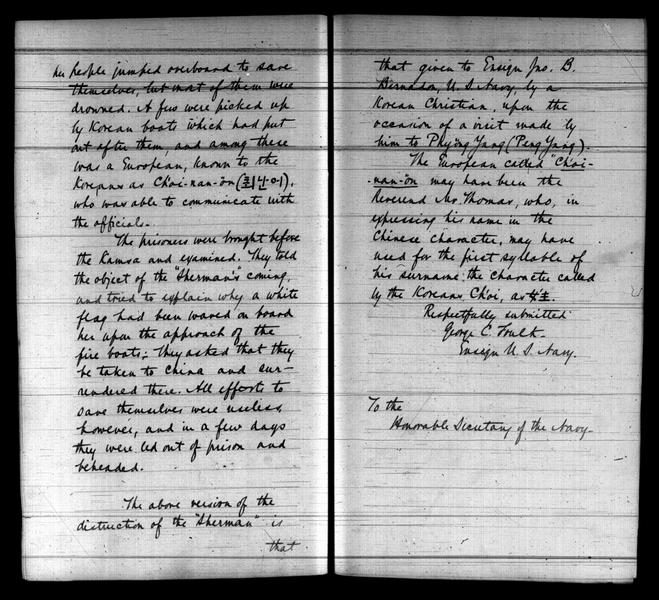 her people jumped overboard to save
themselves, but most of them were
drowned. A few were picked up
by Korean boats which had put
out after them, and among these
was a European, known to the
Koreans as Ch'oi-nan-ŏn (최난어),
who was able to communicate with
the officials.-
The prisoners were brought before
the Kamsa and examined. They told
the object of the "Sherman's" coming,
and tried to explain why a white
flag had been waved on board
her upon the approach of the
fire boats;- they asked that they
be taken to China and sur-
rendered there. All efforts to
save themselves were useless,
however, and in a few days
they were led out of prison and
beheaded.
The above version of the
distruction of the "Sherman" is
that
that given to Ensign Jno. B.
Bernadou, U.S. Navy, by a
Korean Christian, upon the
occasion of a visit made by
him to Phyŏng Yang (Peng Yang).
The European called "Ch'oi-
nan-ŏn may have been the
Reverend Mr. Thomas, who, in
expressing his name in the
Chinese character, may have
used for the first syllable of
his surname the character called
by the Koreans Ch'oi, as
Respectfully submitted
George C. Foulk-
Ensign U.S. Navy.
To the
Honorable Secretary of the Navy-